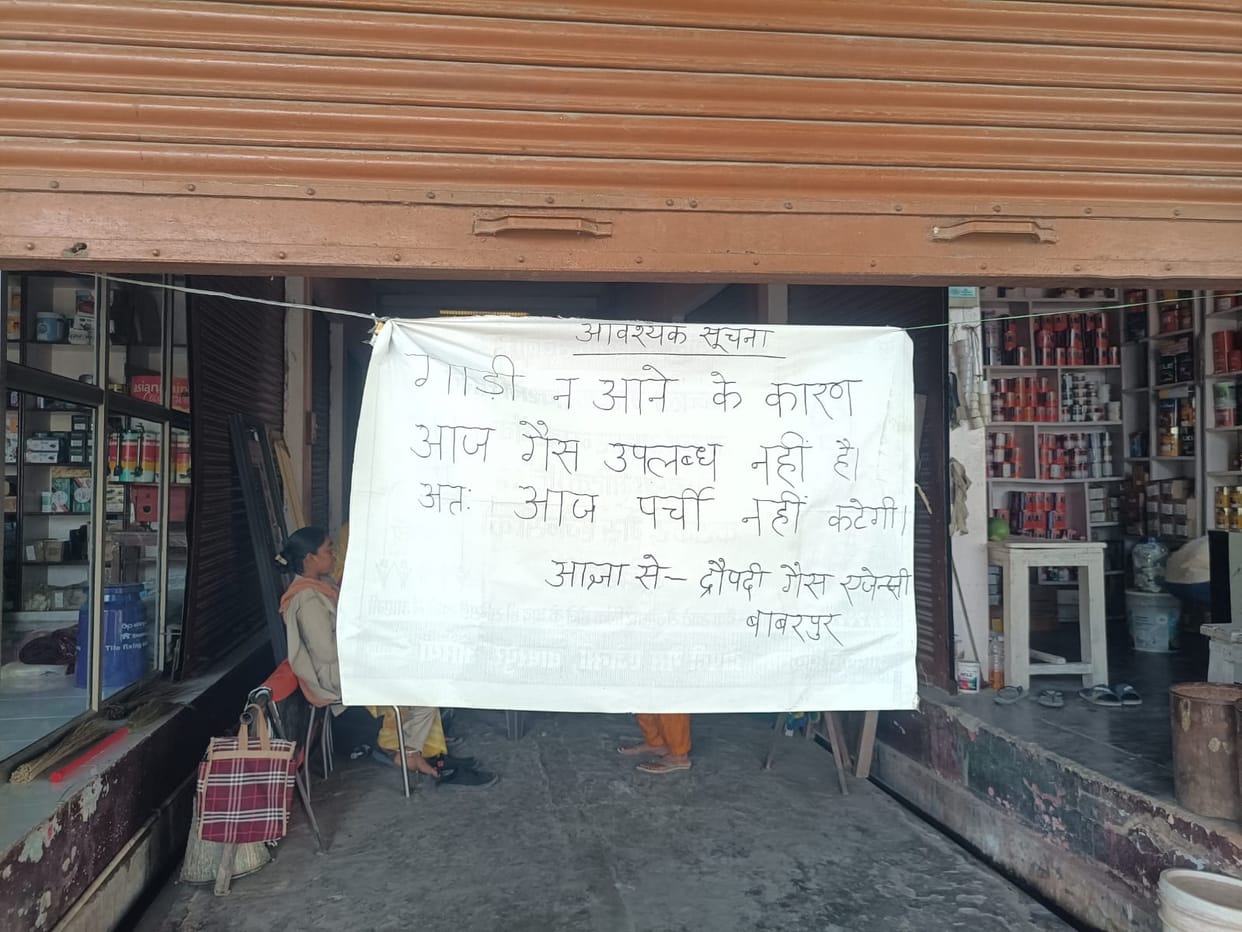 आवश्यक सूचना
गाडी न आने के कारण
आज गैस उपलब्ध नहीं है।
अतः आज पर्ची नहीं कटेगी।
आज्ञा से - द्रौपदी गैस एजेन्सी
बाबरपुर